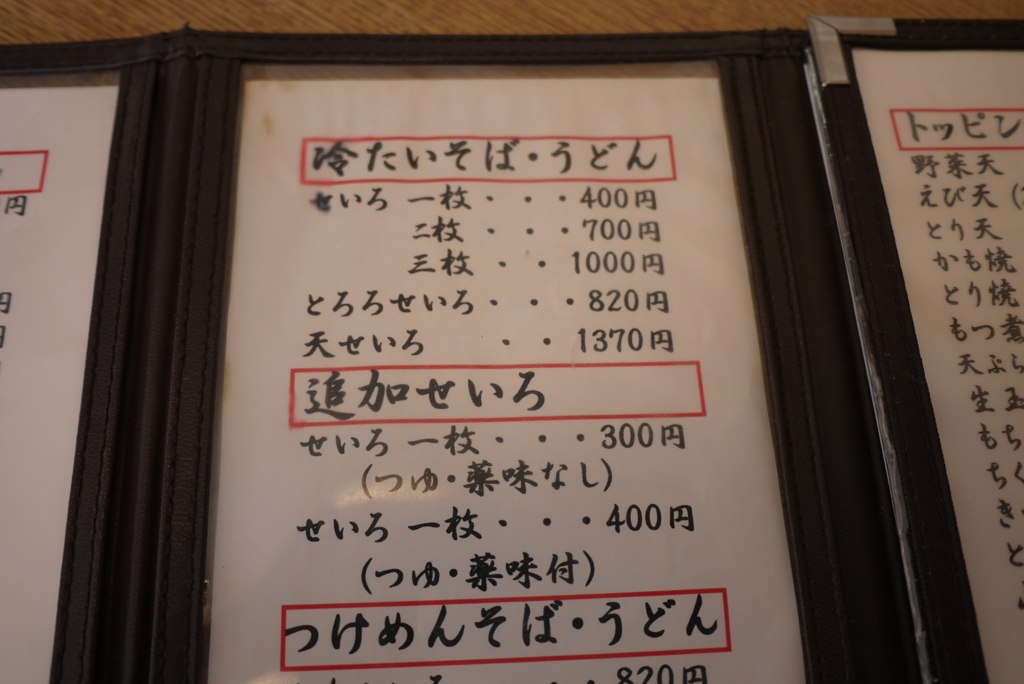 円
円
円
冷たいそば・うどん
せいろ 一枚・・・400円
二枚・・・700円
三枚・・1000円
とろろせいろ・・・820円
天せいろ・・1370円
追加せいろ
せいろ 一枚・・・300円
(つゆ・薬味なし)
せいろ 一枚・・・400円
(つゆ・薬味付)
つけめんそば・うどん
820円
トッピン
野菜天
えび天
とり天
かも焼
とり焼
もつ煮
天ぷら
生玉
もち
ちく
き
と